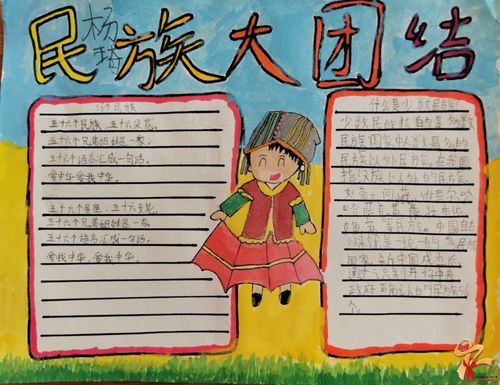 民族大团结
杨
56个民族
五十六个民族，五十六朵花。
五十六个兄弟姐妹是一家，
五十六个语言汇成一句话。
爱中华，爱我中华。
五十六个星座，五十六支花
五十六个兄弟姐妹是一家
五十六个语言汇成一句话。
爱我中华，爱我中华。
什么是少数民族?
少数民族指的是多数
民族国家中人数最多的
民族以外的民族。在我国
指汉族以外的民族。
如
哈萨克
等民族。中国自古
以来就是一统一的多民族
国家。新中国成立后，
通过识别并经中央
政府确认的民族56
个。